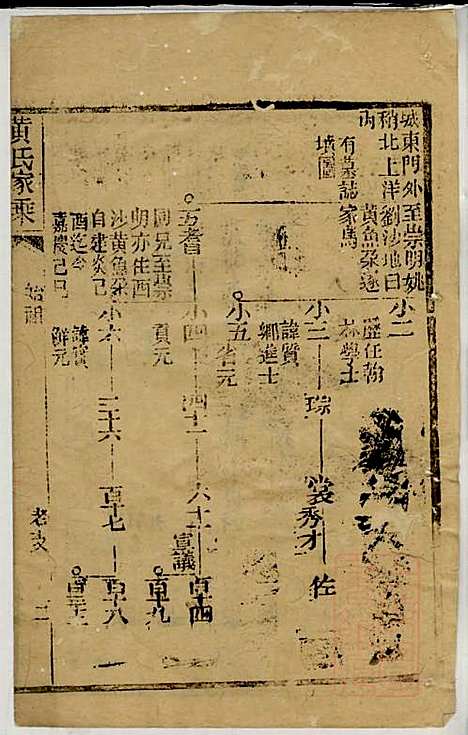 城東門外至崇明姚
稍北上洋劉沙地曰
西 黃魚垛遂
有墓誌家馬
墳圖
小二
歷任翰
林學士
小三 琮 裳秀才 佐
諱質
鄉進士
小五 省元
五耆
小四 四十一 六十二 宣議 百十四
同兄至崇 貢元 百十九
明亦住西
沙黃魚垛 小六 三十六 百十七 百十八
自建炎己 諱賓
酉迄今 解元
嘉慶己巳
黃氏家乘
始祖
老支
二